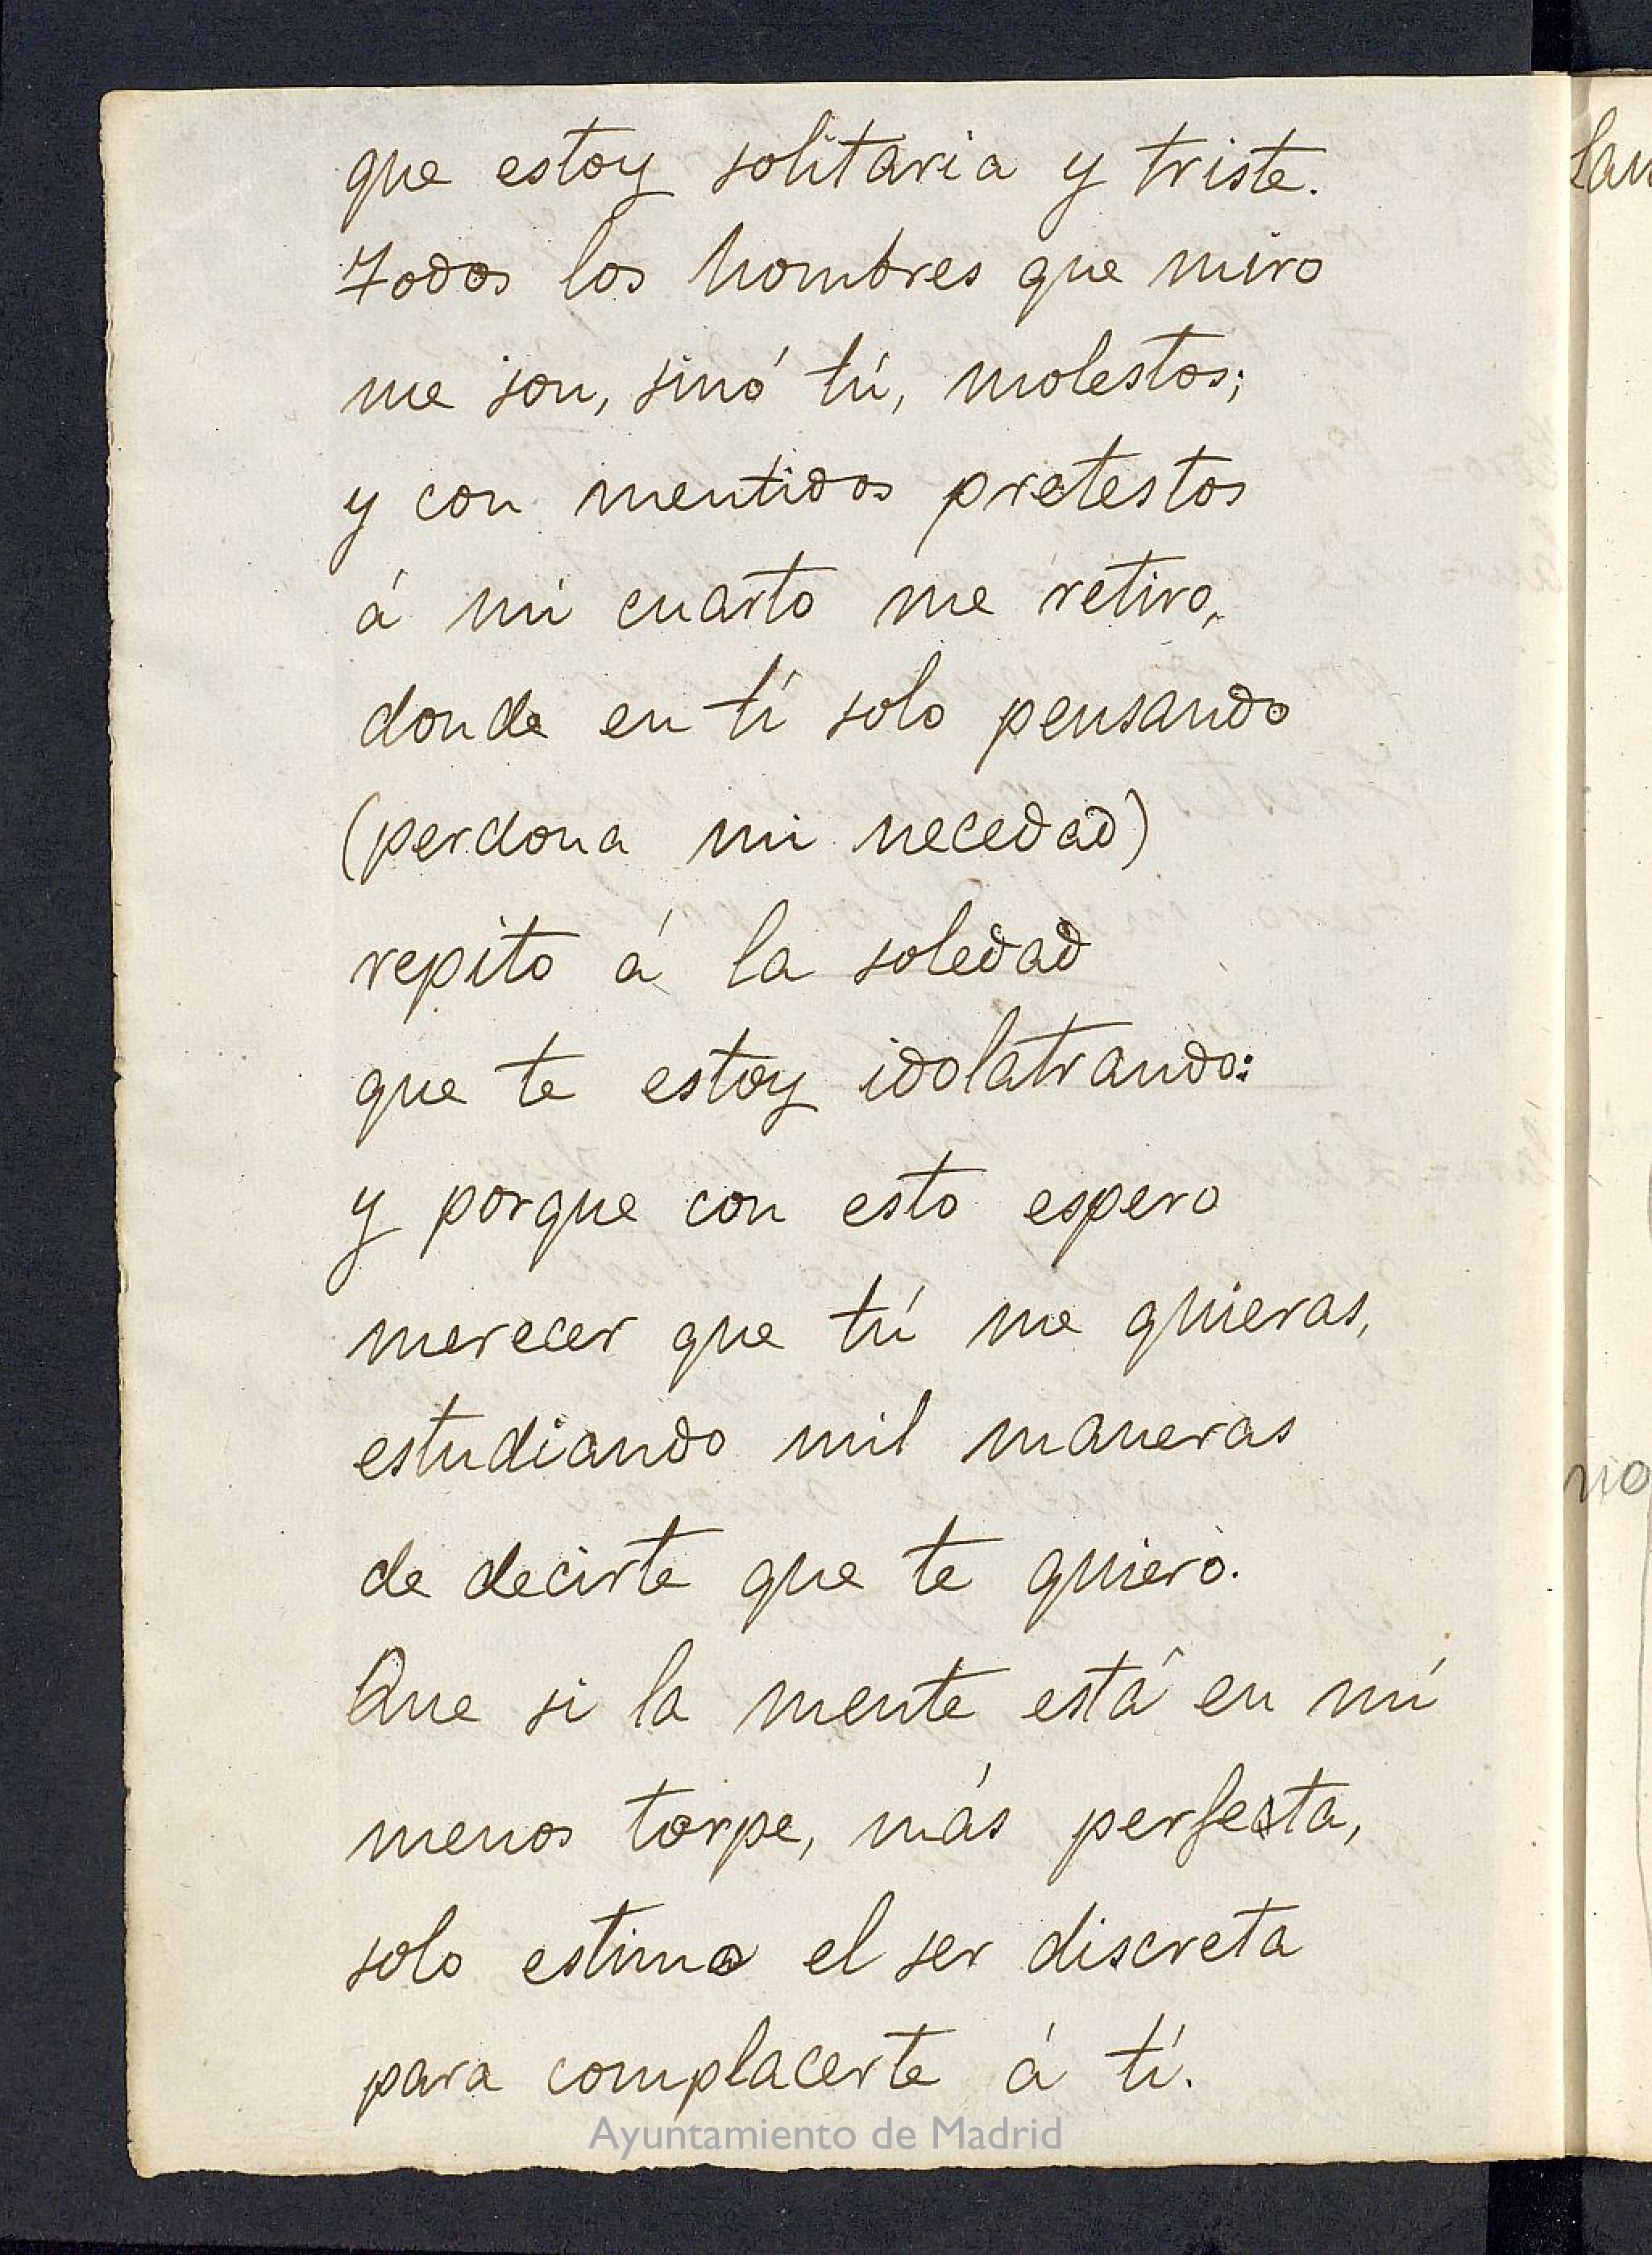 que estoy solitaria y triste.
Todos los hombres que miro
me son, sinó tú, molestos;
y con mentidos pretestos
á mi cuarto me retiro,
donde en tí solo pensando
(perdona mi necedad)
repito á la soledad
que te estoy idolatrando:
y porque con esto espero
merecer que tú me quieras,
estudiando mil maneras
de decirte que te quiero.
Que si la mente está en mí
menos torpe, más perfecta,
solo estimo el ser discreta
para complacerte á tí.
Ayuntamiento de Madrid
no